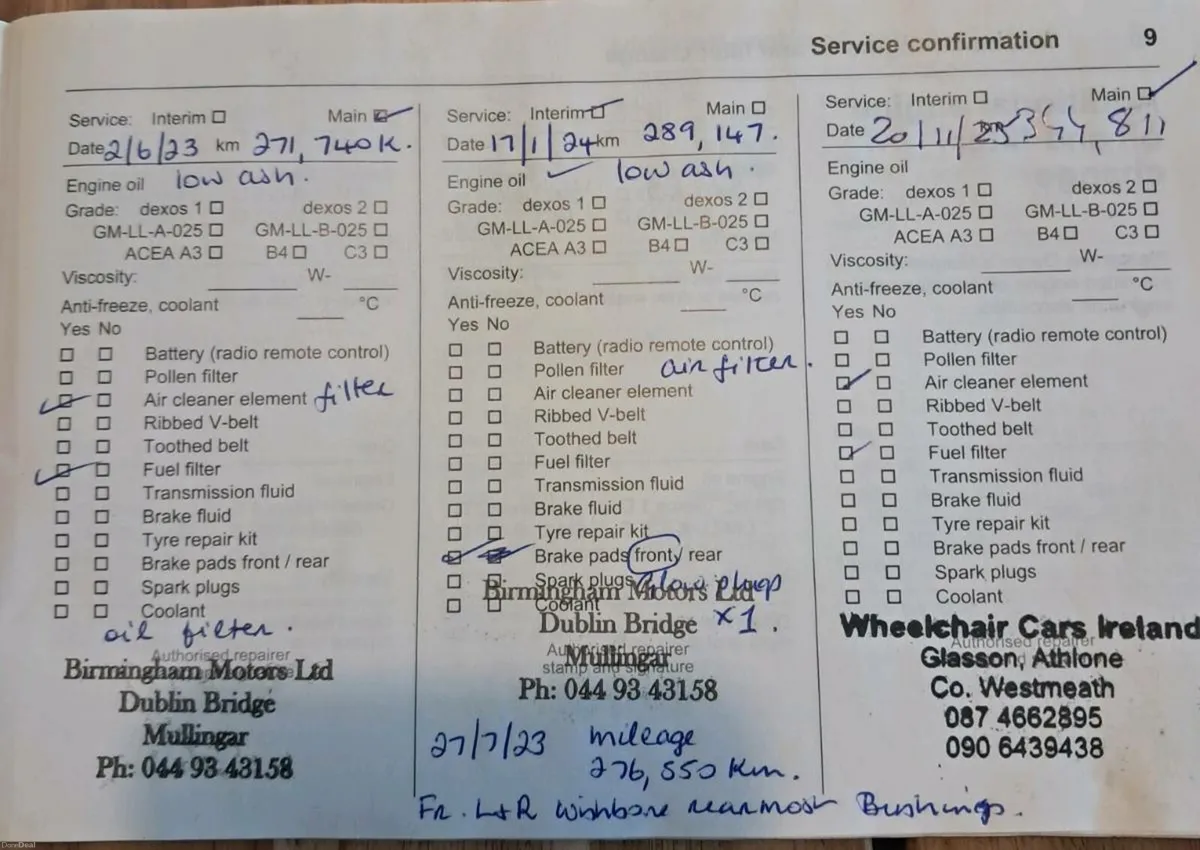 Service confirmation 9
Service: Interim Main
Date 2/6/23 km 271,740K.
Engine oil low ash.
Grade: dexos 1 dexos 2
GM-LL-A-025 GM-LL-B-025
ACEA A3 B4 C3
Viscosity: W-
Anti-freeze, coolant °C
Yes No
Battery (radio remote control)
Pollen filter
Air cleaner element filter
Ribbed V-belt
Toothed belt
Fuel filter
Transmission fluid
Brake fluid
Tyre repair kit
Brake pads front / rear
Spark plugs
Coolant
oil filter.
Authorised repairer
Birmingham Motors Ltd
Dublin Bridge
Mullingar
Ph: 044 93 43158
Service: Interim Main
Date 17/1/24 km 289,147.
Engine oil low ash.
Grade: dexos 1 dexos 2
GM-LL-A-025 GM-LL-B-025
ACEA A3 B4 C3
Viscosity: W-
Anti-freeze, coolant °C
Yes No
Battery (radio remote control)
Pollen filter air filter.
Air cleaner element
Ribbed V-belt
Toothed belt
Fuel filter
Transmission fluid
Brake fluid
Tyre repair kit
Brake pads front / rear
Spark plugs Glow plugs
Birmingham Motors Ltd
Coolant
Dublin Bridge x1.
Authorised repairer
Mullingar
stamp and signature
Ph: 044 93 43158
27/7/23 mileage
276,550 Km.
Fr. L+R wishbone rearmost Bushings.
Service: Interim Main
Date 20/11/
Engine oil
Grade: dexos 1 dexos 2
GM-LL-A-025 GM-LL-B-025
ACEA A3 B4 C3
Viscosity: W-
Anti-freeze, coolant °C
Yes No
Battery (radio remote control)
Pollen filter
Air cleaner element
Ribbed V-belt
Toothed belt
Fuel filter
Transmission fluid
Brake fluid
Tyre repair kit
Brake pads front / rear
Spark plugs
Coolant
Wheelchair Cars Ireland
Authorised repairer
Glasson, Athlone
Co. Westmeath
087 4662895
090 6439438
DoneDeal